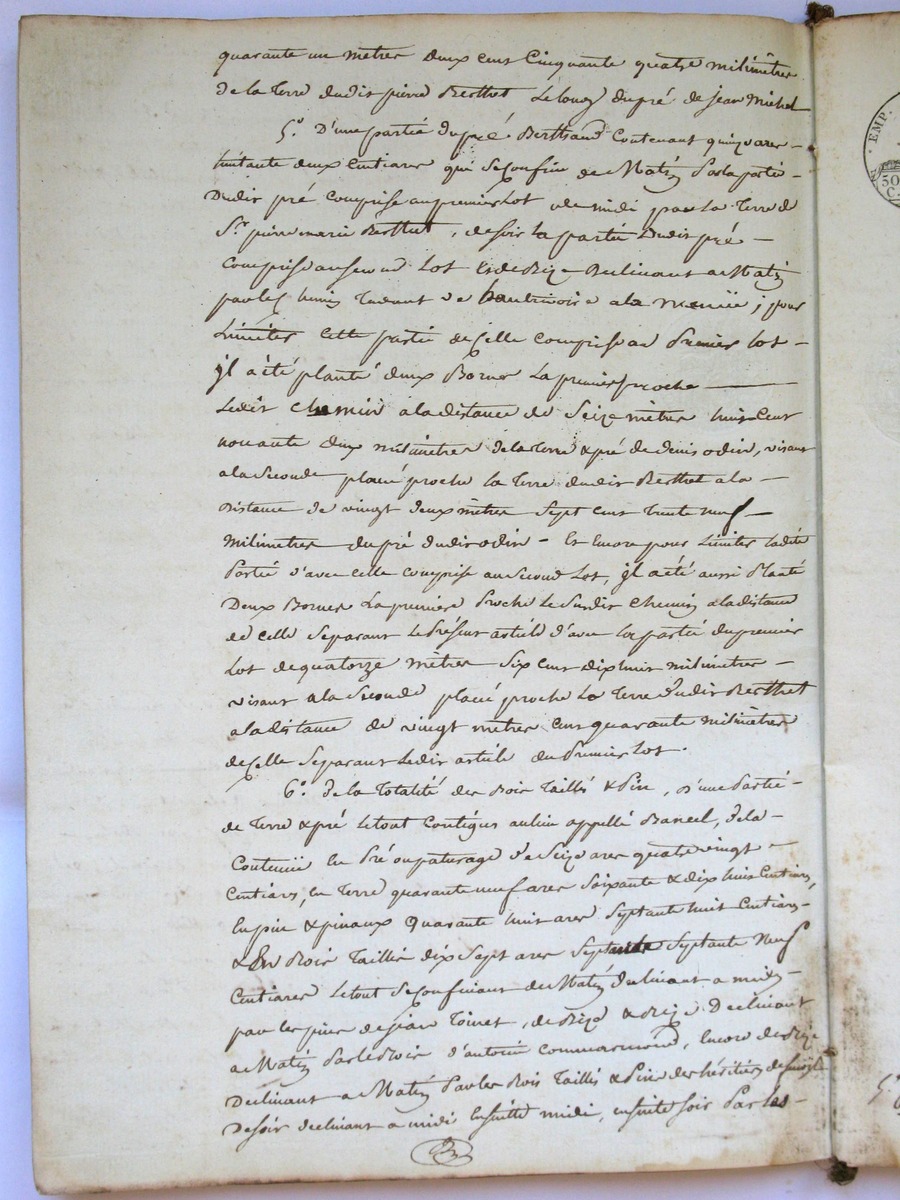 quarante un mètres deux cent Cinquante quatre milimètres
de la Terre dudit pierre Berthet Le long du pré de jean Michel
5.° D'une partie du pré Berthaud Contenant quinze ares
huitante deux Centiares qui Se Confine de Matin Par la partie
Dudit pré Comprise au premier Lot de midi par La Terre de
S.r pierre marie Berthet, de soir la partie Dudit pré
Comprise au second Lot et de Bize Declinant a Matin
par le Chemin Tendant de a la ; pour
Limiter Cette partie de Celle Comprise au Premier Lot
jl a été planté deux Bornes La premiere proche
Ledit Chemin a la distance de Seize mètres huit Cent
nonante deux milimètres de la Terre & pré de denis odin, visant
a la Seconde placé proche la Terre dudit Berthet a la
Distance de vingt deux mètres Sept cent Trente neuf
milimètres du pré dudit odin - Et Encore pour Limiter ladite
Partie d'avec Celle Comprise au Second Lot, jl a été aussi Planté
Deux Bornes La premiere Proche Le Susdit Chemin a la distance
de Celle Separant Le Présent article d'avec la partie du premier
Lot de quatorze mètres Six Cent dix huit milimètres
visant a la Seconde placé proche La Terre dudit Berthet
a la distance de vingt mètres Cent quarante milimètres
de Celle Separant Ledit article du Premier Lot.
6.° de la Totalité des Bois Taillis & Pin, D'une Partie
de Terre & pré Le tout Contigus au lieu appellé Baneel, de la
Contenüe En Pré ou paturage de Seize ares quatre vingt
Centiares, en Terre quarante neuf ares Soixante & dix huit Centiares,
En pin & pinaux Quarante huit ares Septante huit Centiares
& En Bois Taillis dix Sept ares Septante Neuf
Centiares Le tout Se Confinant de Matin declinant a midy
par les pins de jean Toinet, de Bize & Bize Declinant
a Matin Par le Bois d'antoine Commarmond, Encore de Bize
Declinant a Matin Par les Bois Taillis & Pin des héritiers de
De soir declinant a midi Ensuite midi, ensuite soir Par les